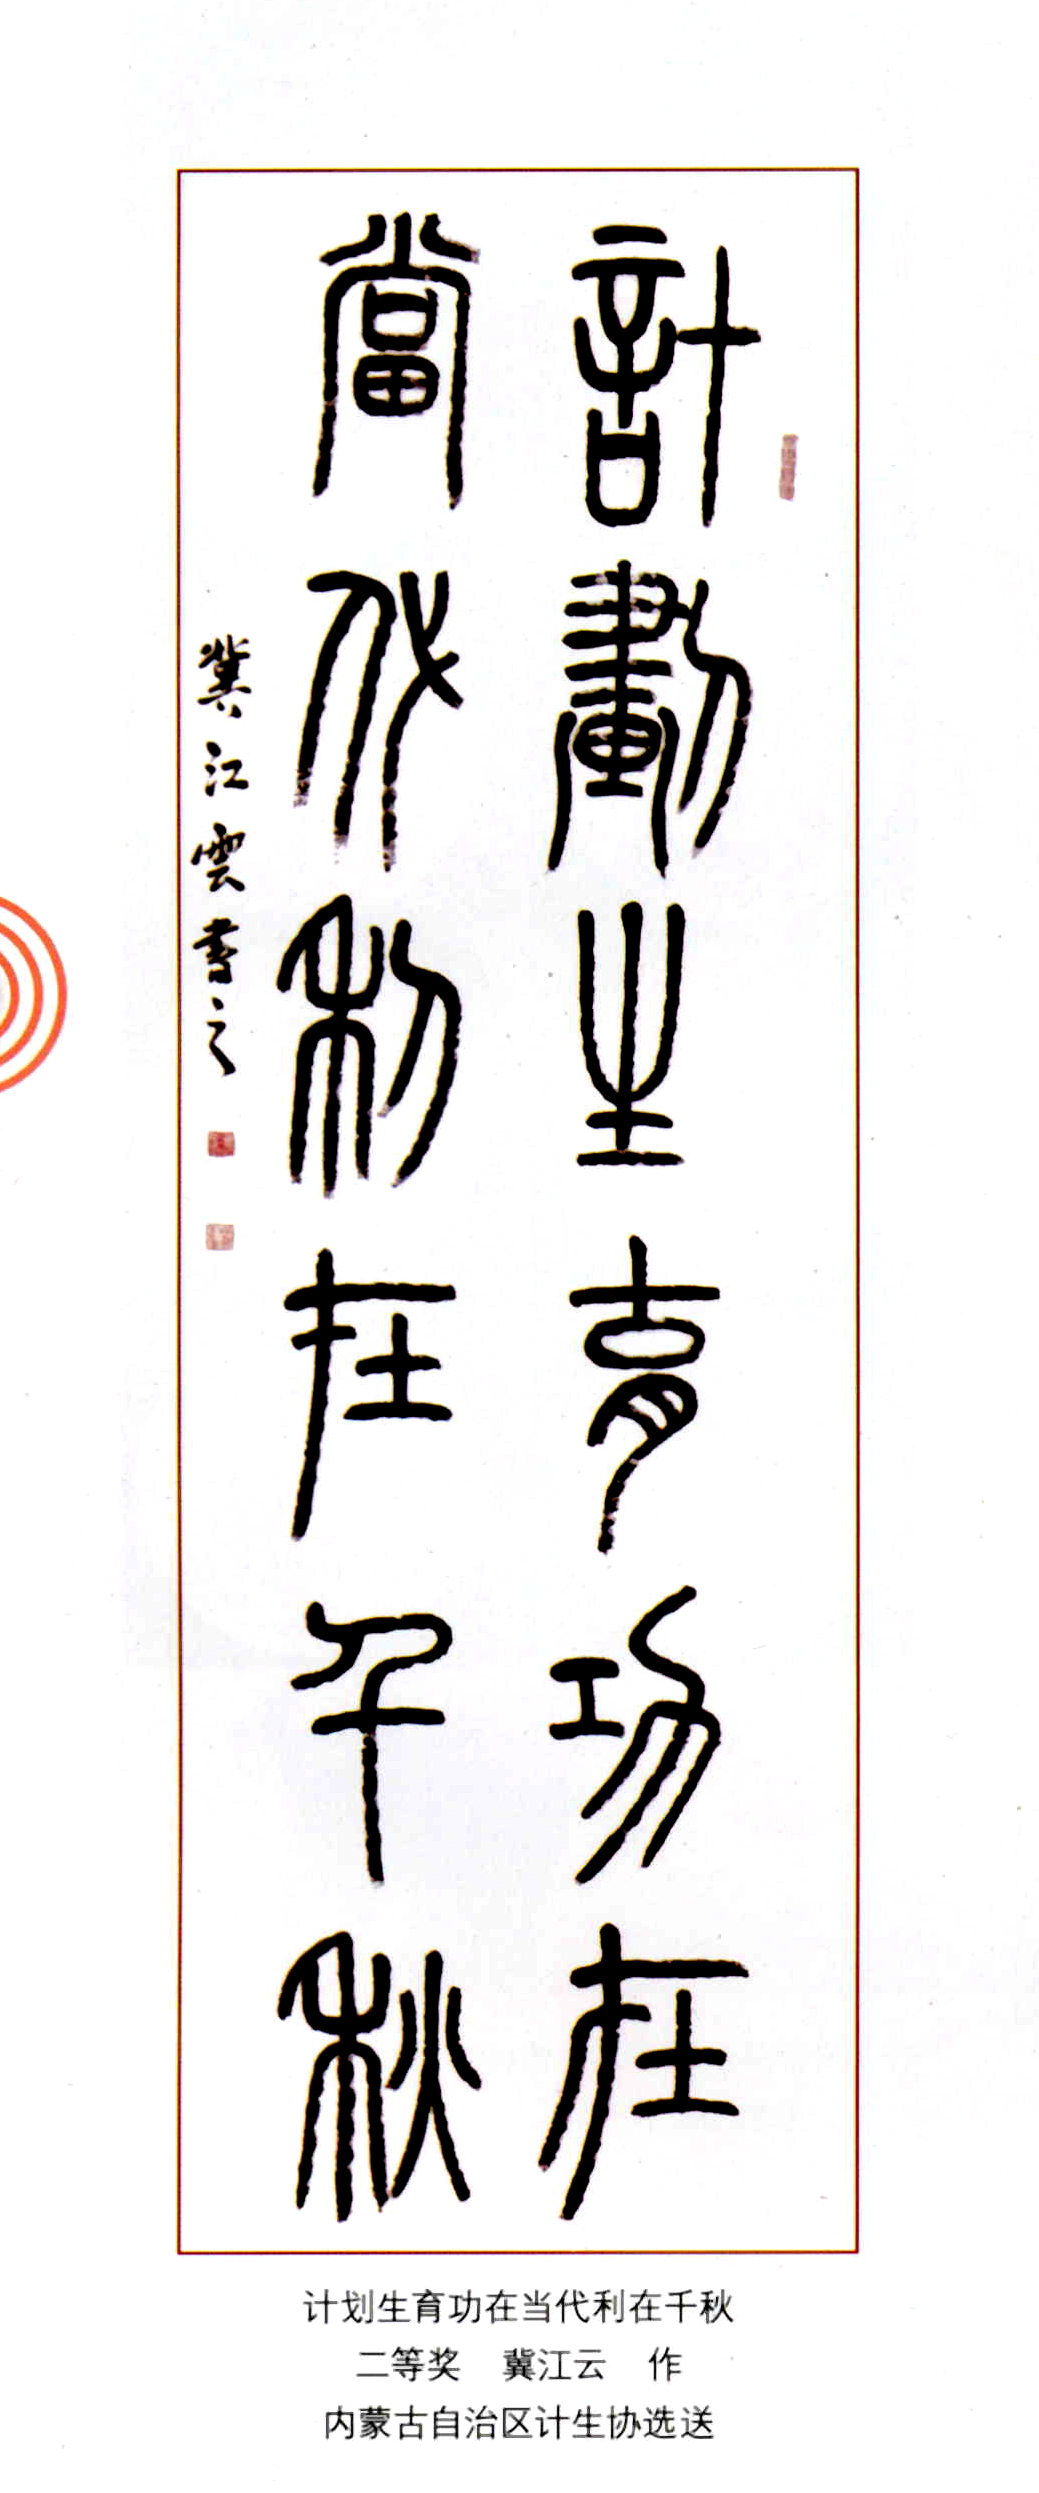 計劃生育功在
當代利在千秋
冀江雲書之
计划生育功在当代利在千秋
二等奖 冀江云 作
内蒙古自治区计生协选送